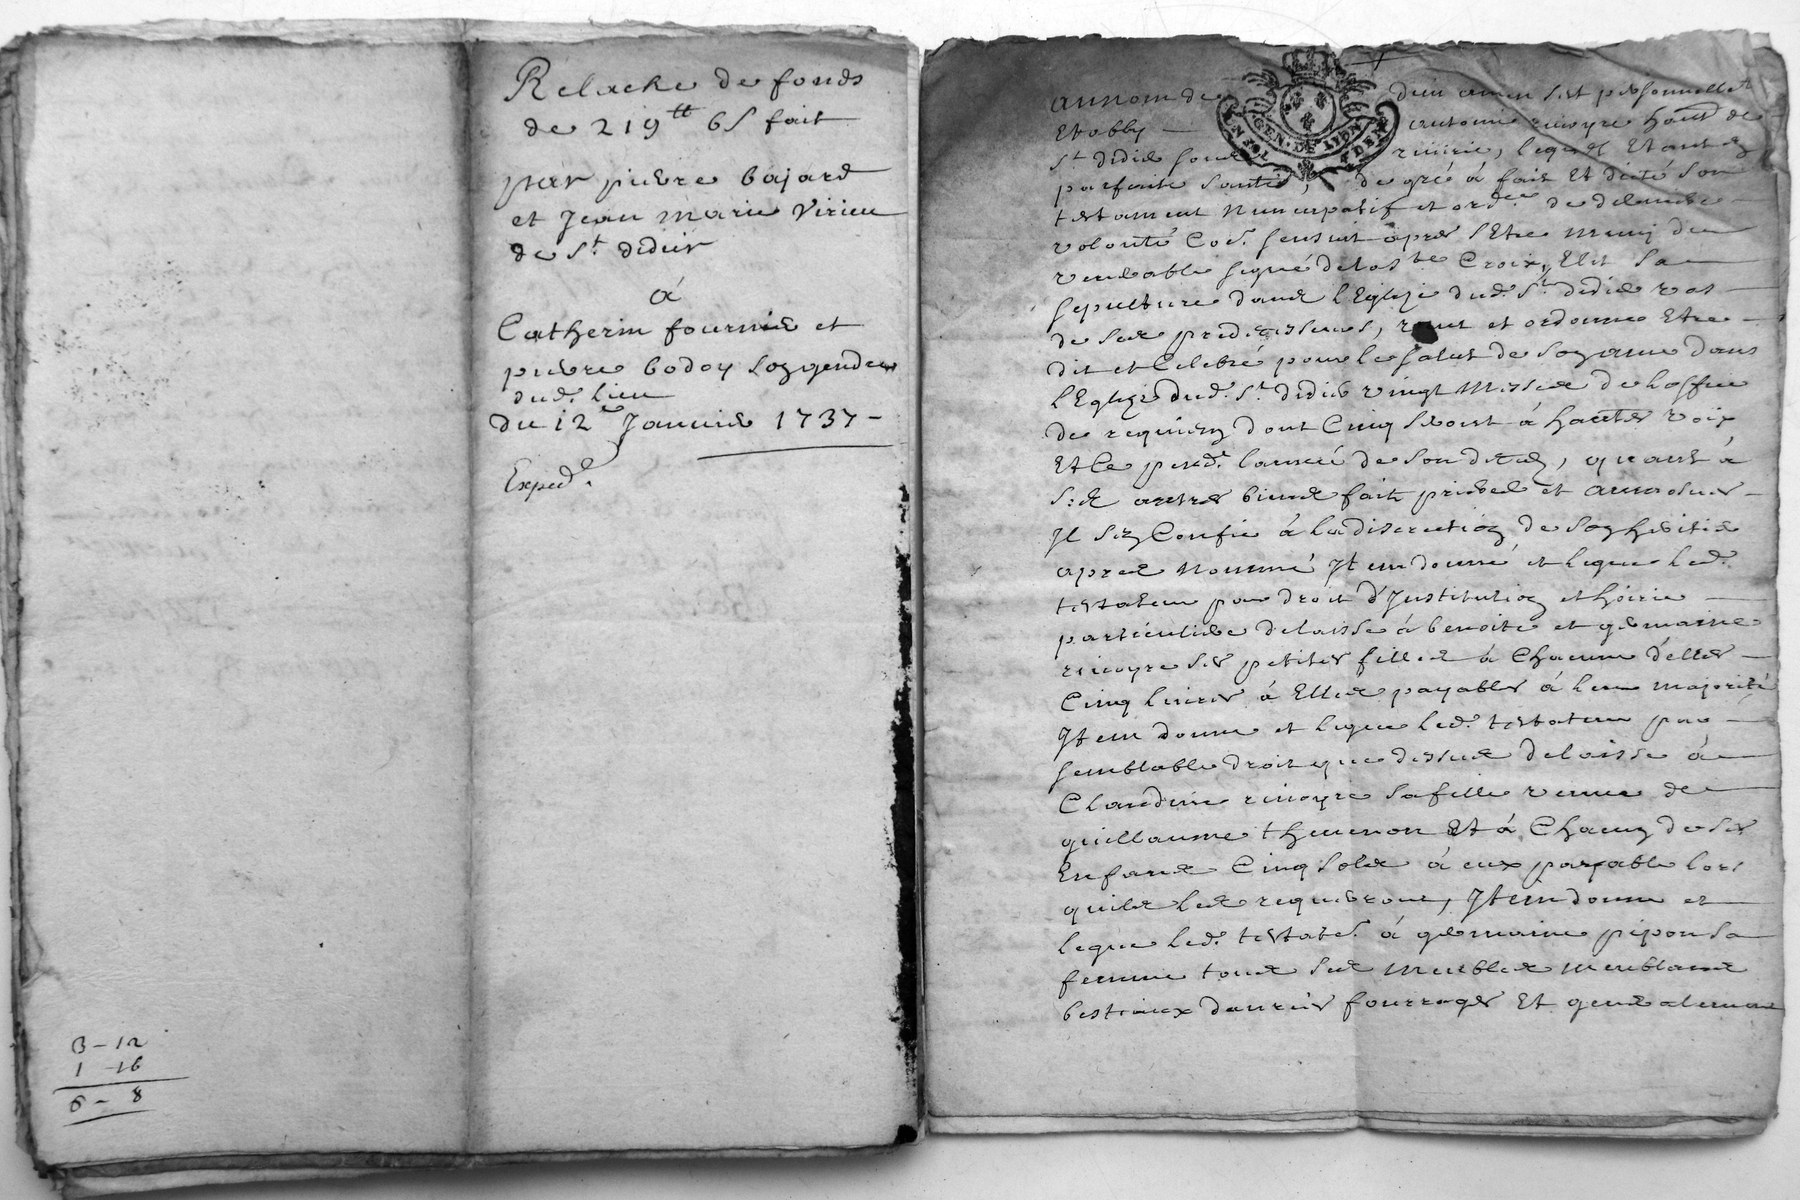 Relache de fonds
de 219tt 6s fait
par pierre bajard
et Jean marie Virieu
de St didier
à
Catherin fournier et
pierre bodoy son gendre
dud. lieu
du 12e Janvier 1737 -
Exped.
3 - 12
1 - 16
- 8
au nom de dieu amen est personnellet
Etably
St didier rivirie, lequel Etant en
parfaite santé, de gré à fait Et dicté son
testament nuncupatif et ordre de derniere
volonté Co. sensuit apres sEtre muny du
venerable signe de la ste Croix, Elit sa
sepulture dans lEglize dud. St didier vas
de ses predecesseurs, veut et ordonne Etre
dit et Celebré pour le salut de son ame dans
lEglize dud. St didier vingt Messes de loffice
de requiem dont Cinq seront à hautes voix
Et Ce pend. lannée de son deces, quant à
ses autres biens faits et aumosnes
Il sen Confie à la discretion de son heritier
apres nommé Item donne et legue led.
testateur par droit d'Institution et hoirie
particuliere delaisse à benoite et germaine
rivoyre ses petites filles à Chacune d'elles
Cinq livres à Elles payables à leur majorité
Item donne et legue led. testateur par
semblable droit que dessus delaisse à
Claudine rivoyre sa fille veuve de
guillaume thevenon Et à Chacun de ses
Enfans Cinq sols à eux payable lors
quils les requerront, Item donne et
legue led. testate. à germaine pipon sa
femme tous ses meubles meublans
bestiaux danrées fourrages Et generalement
GEN. DE LYON